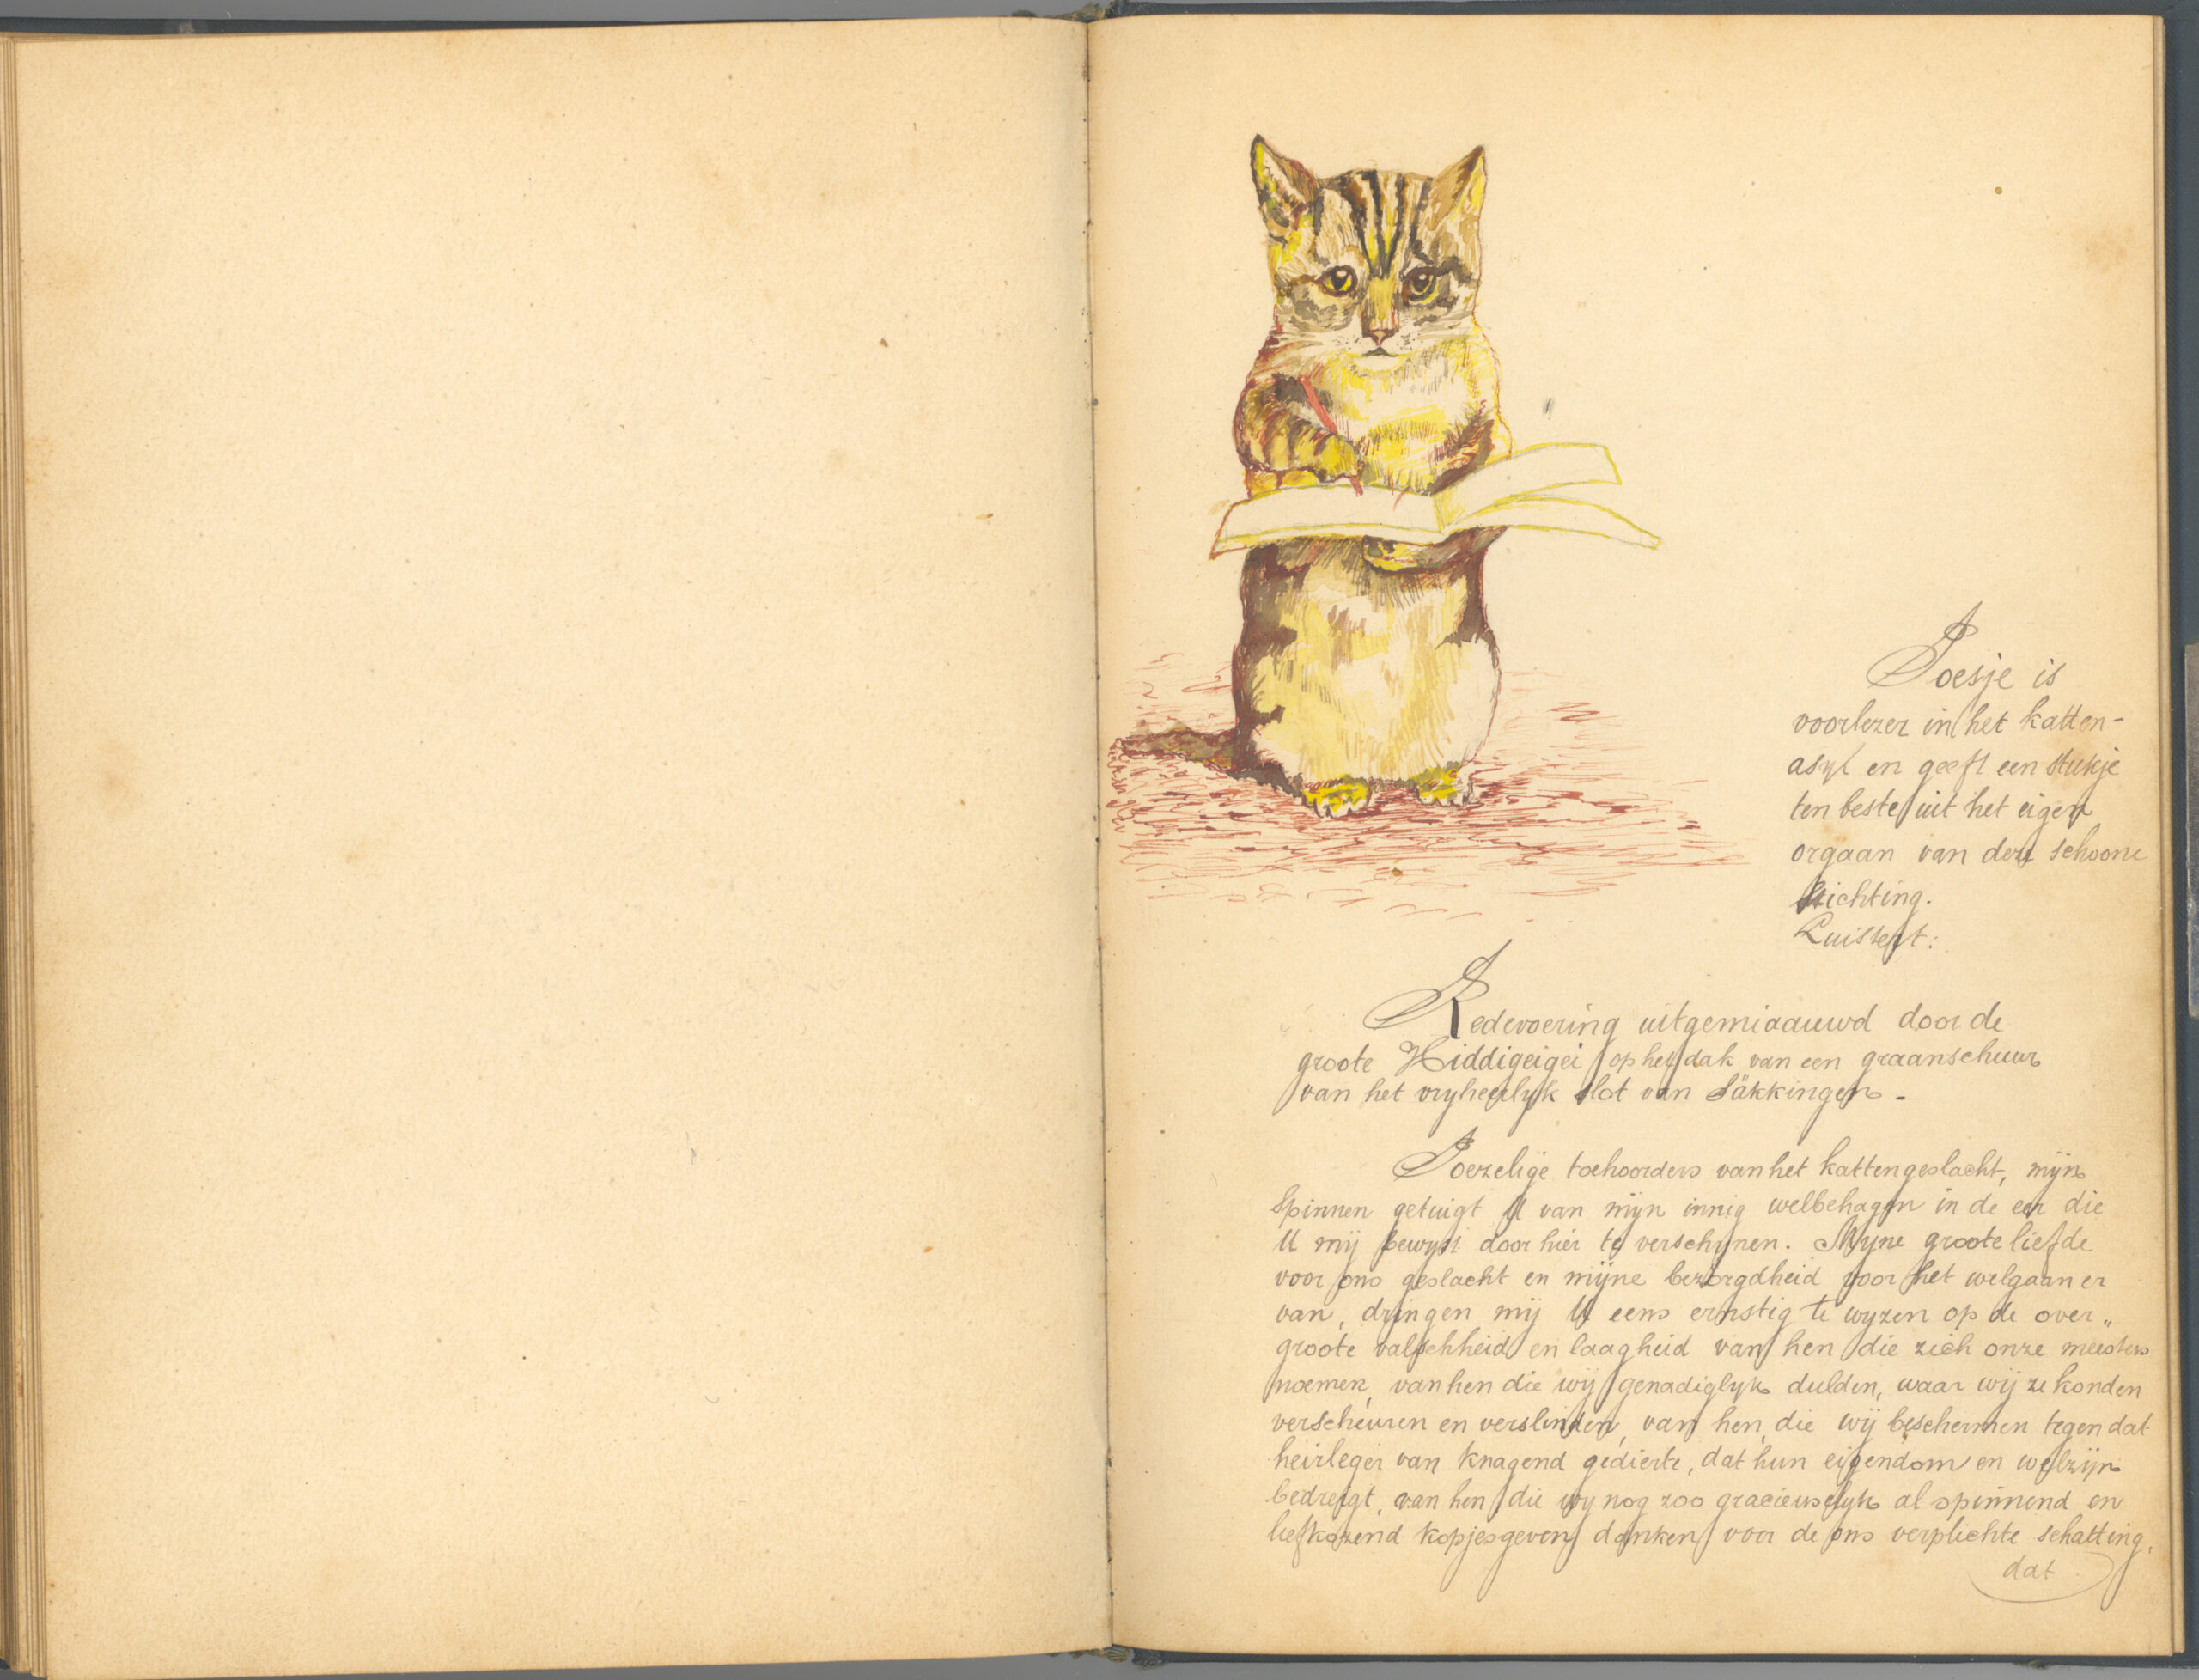 Poesje is
voorlezer in het katten-
asyl en geeft een stukje
ten beste uit het eigen
orgaan van deze schoone
stichting.
Luistert:
Redevoering uitgemiaauwd door de
groote Hiddigeigei op het dak van een graanschuur
van het vryheerlyk slot van Säkkingen -
Poezelige toehoorders van het kattengeslacht, mijn
spinnen getuigt U van mijn innig welbehagen in de eer die
U mij bewyst door hier te verschynen. Myne groote liefde
voor ons geslacht en mijne bezorgdheid voor het welgaan er
van, dringen mij U eens ernstig te wyzen op de over„
groote valschheid en laagheid van hen die zich onze meesters
noemen, van hen die wij genadiglyk dulden, waar wij ze konden
verscheuren en verslinden, van hen, die wij beschermen tegen dat
heirleger van knagend gedierte, dat hun eigendom en welzijn
bedreigt, van hen, die wy nog zoo gracieuselyk al spinnend en
liefkozend kopjesgevend danken voor de ons verplichte schatting,
dat